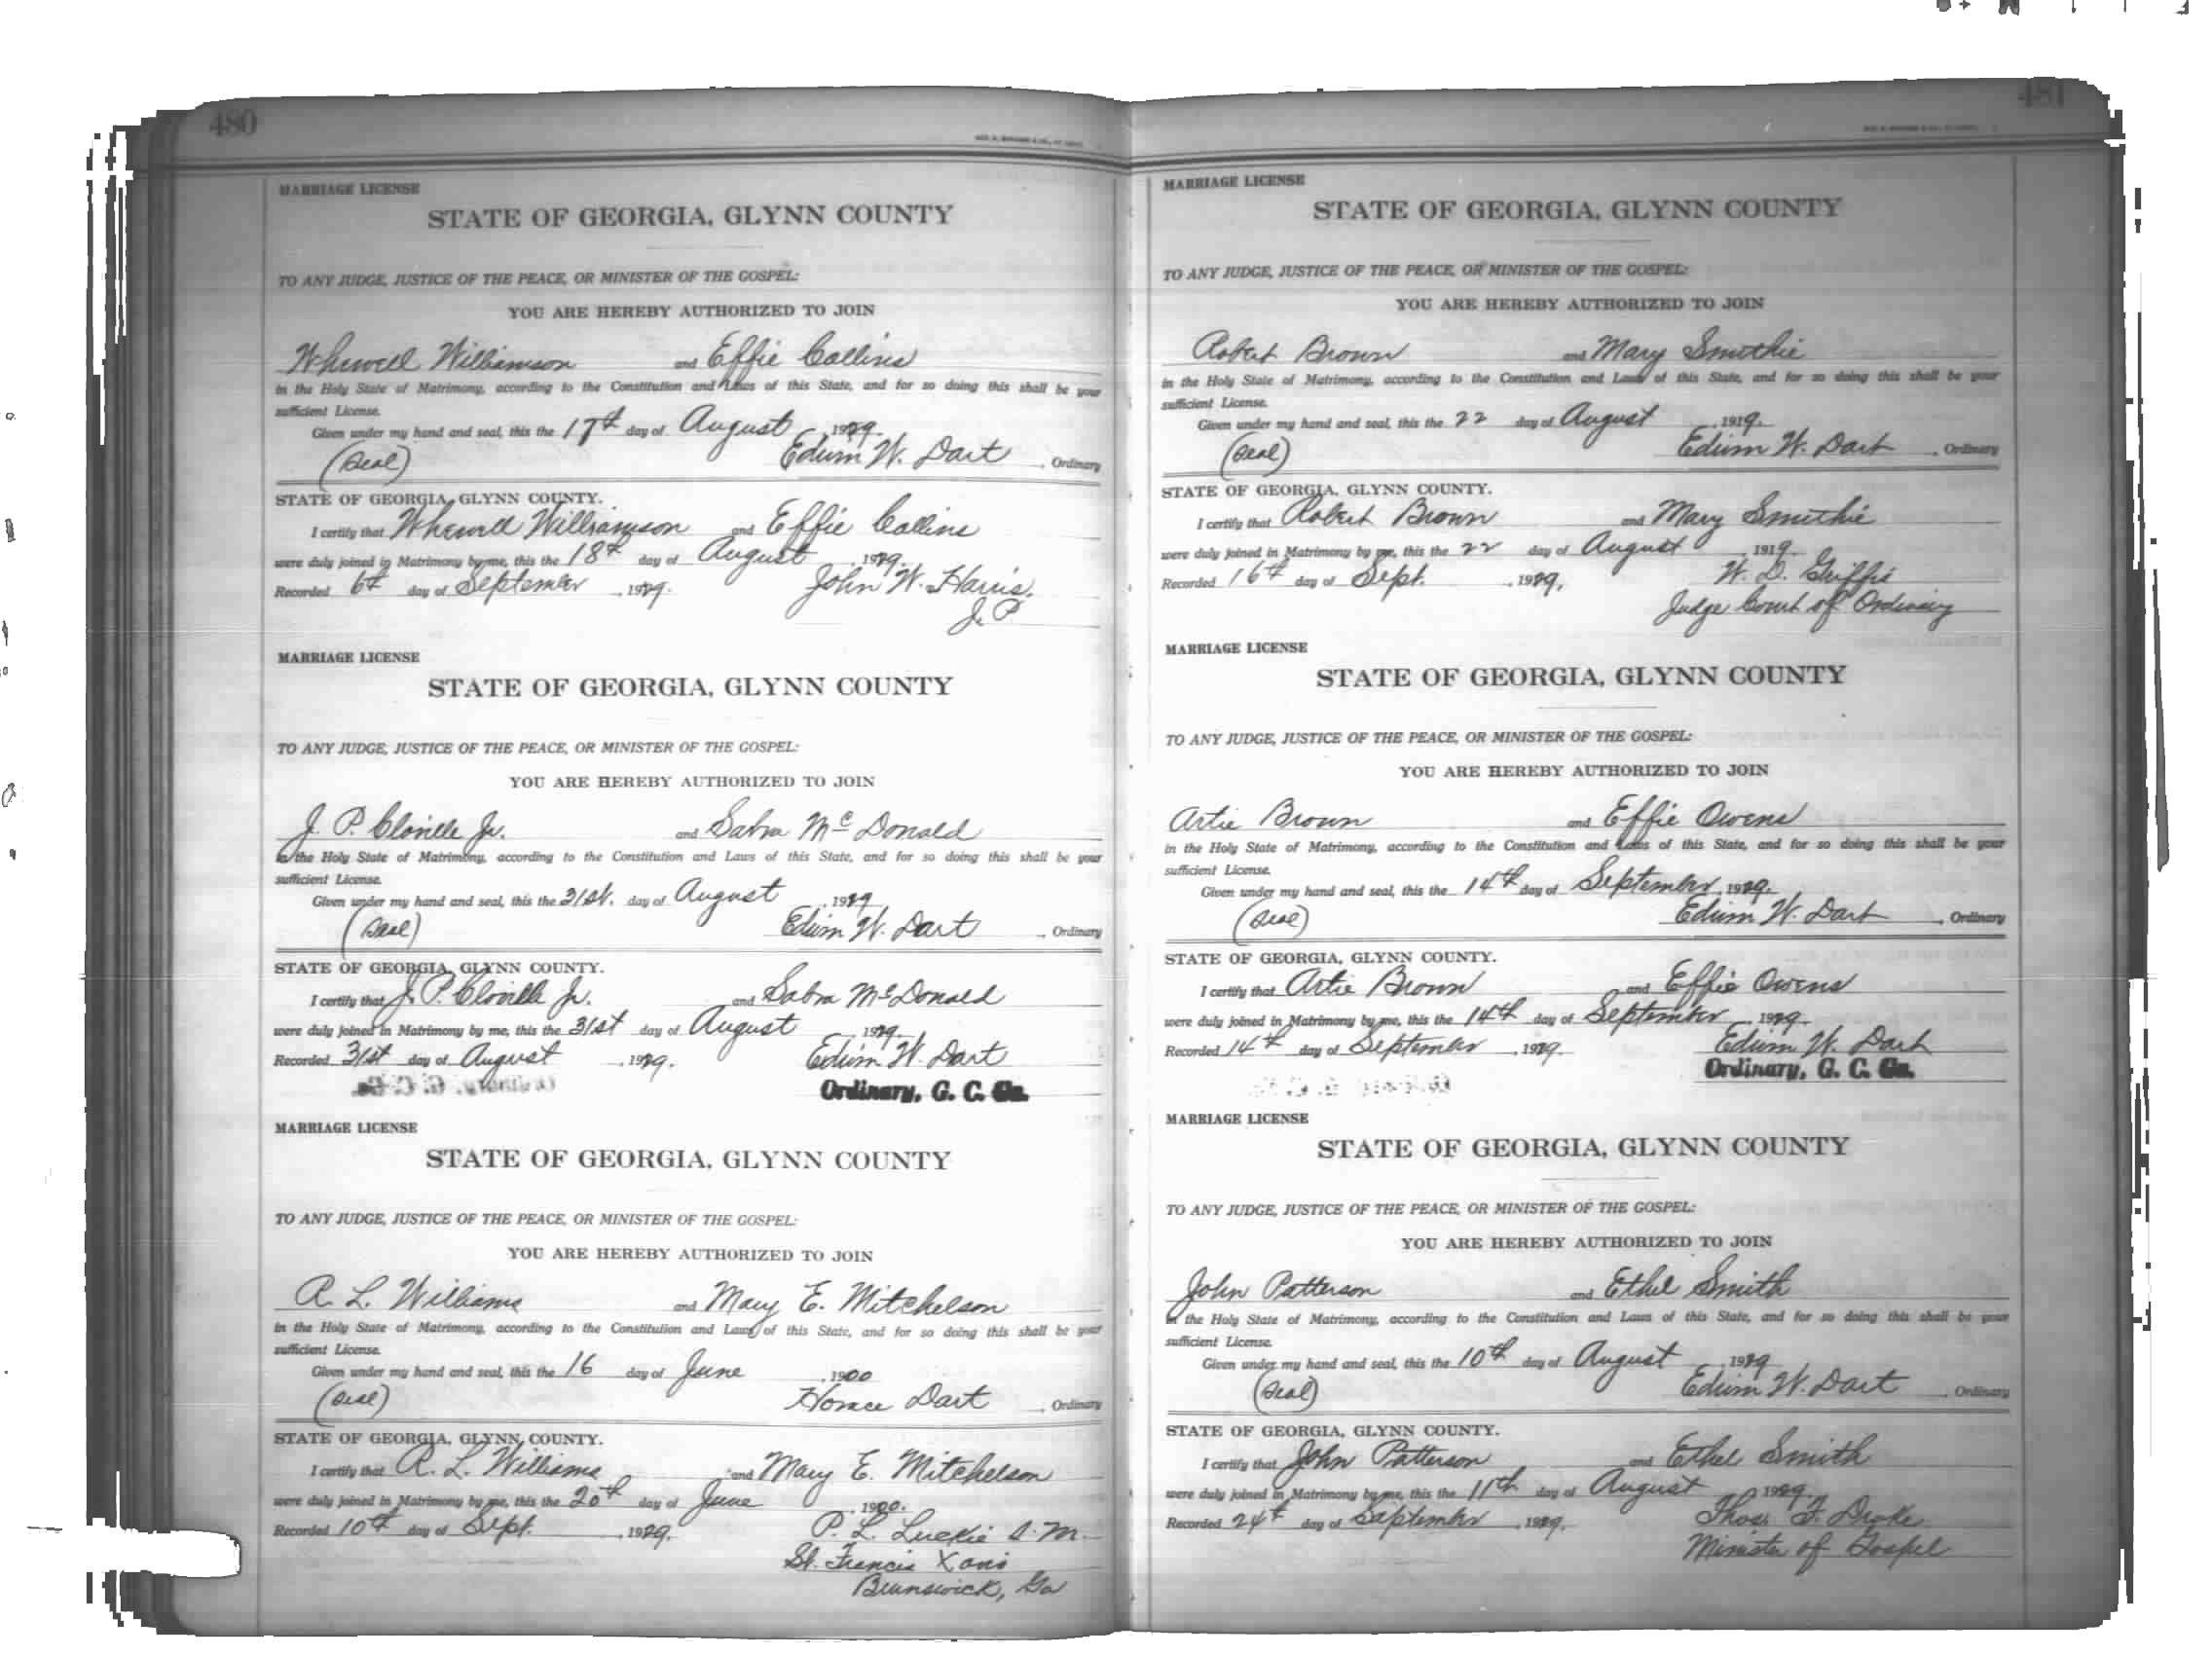 480
MARRIAGE LICENSE
STATE OF GEORGIA, GLYNN COUNTY
TO ANY JUDGE, JUSTICE OF THE PEACE, OR MINISTER OF THE GOSPEL:
YOU ARE HEREBY AUTHORIZED TO JOIN
Whewell Williamson and Effie Collins
in the Holy State of Matrimony, according to the Constitution and Laws of this State, and for so doing this shall be your
sufficient License.
Given under my hand and seal, this the 17th day of August, 1929.
(Seal) Edwin W. Dart, Ordinary
STATE OF GEORGIA, GLYNN COUNTY.
I certify that Whewell Williamson and Effie Collins
were duly joined in Matrimony by me, this the 18th day of August, 1929.
Recorded 6th day of September, 1929. John W. Harris.
J. P.
MARRIAGE LICENSE
STATE OF GEORGIA, GLYNN COUNTY
TO ANY JUDGE, JUSTICE OF THE PEACE, OR MINISTER OF THE GOSPEL:
YOU ARE HEREBY AUTHORIZED TO JOIN
J. P. Clonelle Jr. and Sabra McDonald
in the Holy State of Matrimony, according to the Constitution and Laws of this State, and for so doing this shall be your
sufficient License.
Given under my hand and seal, this the 31st. day of August, 1929
(Seal) Edwin W. Dart, Ordinary
STATE OF GEORGIA, GLYNN COUNTY.
I certify that J. P. Clonelle Jr. and Sabra McDonald
were duly joined in Matrimony by me, this the 31st day of August, 1929.
Recorded 31st day of August, 1929. Edwin W. Dart
Ordinary, G. C. Ga.
MARRIAGE LICENSE
STATE OF GEORGIA, GLYNN COUNTY
TO ANY JUDGE, JUSTICE OF THE PEACE, OR MINISTER OF THE GOSPEL:
YOU ARE HEREBY AUTHORIZED TO JOIN
R. L. Williams and Mary E. Mitchelson
in the Holy State of Matrimony, according to the Constitution and Laws of this State, and for so doing this shall be your
sufficient License.
Given under my hand and seal, this the 16 day of June, 1900
(Seal) Horace Dart, Ordinary
STATE OF GEORGIA, GLYNN COUNTY.
I certify that R. L. Williams and Mary E. Mitchelson
were duly joined in Matrimony by me, this the 20th day of June, 1900.
Recorded 10th day of Sept., 1929. P. L. Luckie S. M.
St. Francis Xavis
Brunswick, Ga
481
MARRIAGE LICENSE
STATE OF GEORGIA, GLYNN COUNTY
TO ANY JUDGE, JUSTICE OF THE PEACE, OR MINISTER OF THE GOSPEL:
YOU ARE HEREBY AUTHORIZED TO JOIN
Robert Brown and Mary Smithie
in the Holy State of Matrimony, according to the Constitution and Laws of this State, and for so doing this shall be your
sufficient License.
Given under my hand and seal, this the 22 day of August, 1919.
(Seal) Edwin W. Dart, Ordinary
STATE OF GEORGIA, GLYNN COUNTY.
I certify that Robert Brown and Mary Smithie
were duly joined in Matrimony by me, this the 22 day of August, 1919.
Recorded 16th day of Sept., 1929. W. D. Griffis
Judge Court of Ordinary
MARRIAGE LICENSE
STATE OF GEORGIA, GLYNN COUNTY
TO ANY JUDGE, JUSTICE OF THE PEACE, OR MINISTER OF THE GOSPEL:
YOU ARE HEREBY AUTHORIZED TO JOIN
Artie Brown and Effie Owens
in the Holy State of Matrimony, according to the Constitution and Laws of this State, and for so doing this shall be your
sufficient License.
Given under my hand and seal, this the 14th day of September, 1929.
(Seal) Edwin W. Dart, Ordinary
STATE OF GEORGIA, GLYNN COUNTY.
I certify that Artie Brown and Effie Owens
were duly joined in Matrimony by me, this the 14th day of September, 1929.
Recorded 14th day of September, 1929. Edwin W. Dart
Ordinary, G. C. Ga.
MARRIAGE LICENSE
STATE OF GEORGIA, GLYNN COUNTY
TO ANY JUDGE, JUSTICE OF THE PEACE, OR MINISTER OF THE GOSPEL:
YOU ARE HEREBY AUTHORIZED TO JOIN
John Patterson and Ethel Smith
in the Holy State of Matrimony, according to the Constitution and Laws of this State, and for so doing this shall be your
sufficient License.
Given under my hand and seal, this the 10th day of August, 1929
(Seal) Edwin W. Dart, Ordinary
STATE OF GEORGIA, GLYNN COUNTY.
I certify that John Patterson and Ethel Smith
were duly joined in Matrimony by me, this the 11th day of August, 1929.
Recorded 24th day of September, 1929. Thos. F. Drake
Minister of Gospel